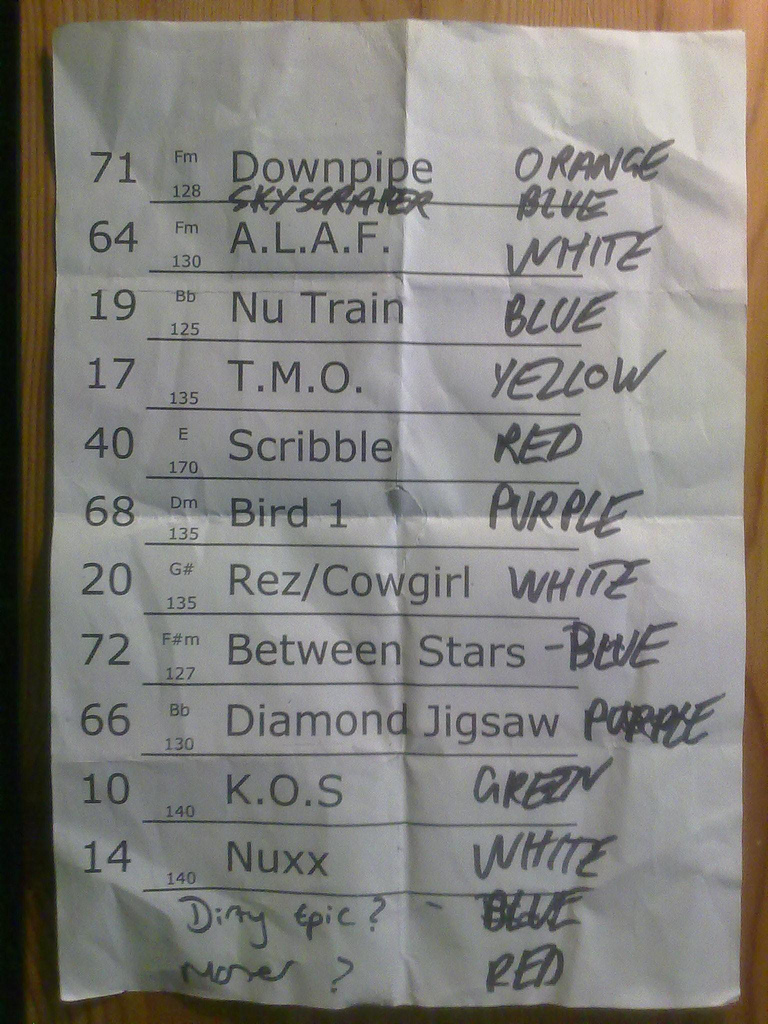 71 Fm 128 Downpipe ORANGE
SKYSCRAPER BLUE
64 Fm 130 A.L.A.F. WHITE
19 Bb 125 Nu Train BLUE
17 135 T.M.O. YELLOW
40 E 170 Scribble RED
68 Dm 135 Bird 1 PURPLE
20 G# 135 Rez/Cowgirl WHITE
72 F#m 127 Between Stars - BLUE
66 Bb 130 Diamond Jigsaw PURPLE
10 140 K.O.S GREEN
14 140 Nuxx WHITE
Dirty Epic? - BLUE
Moner ? RED